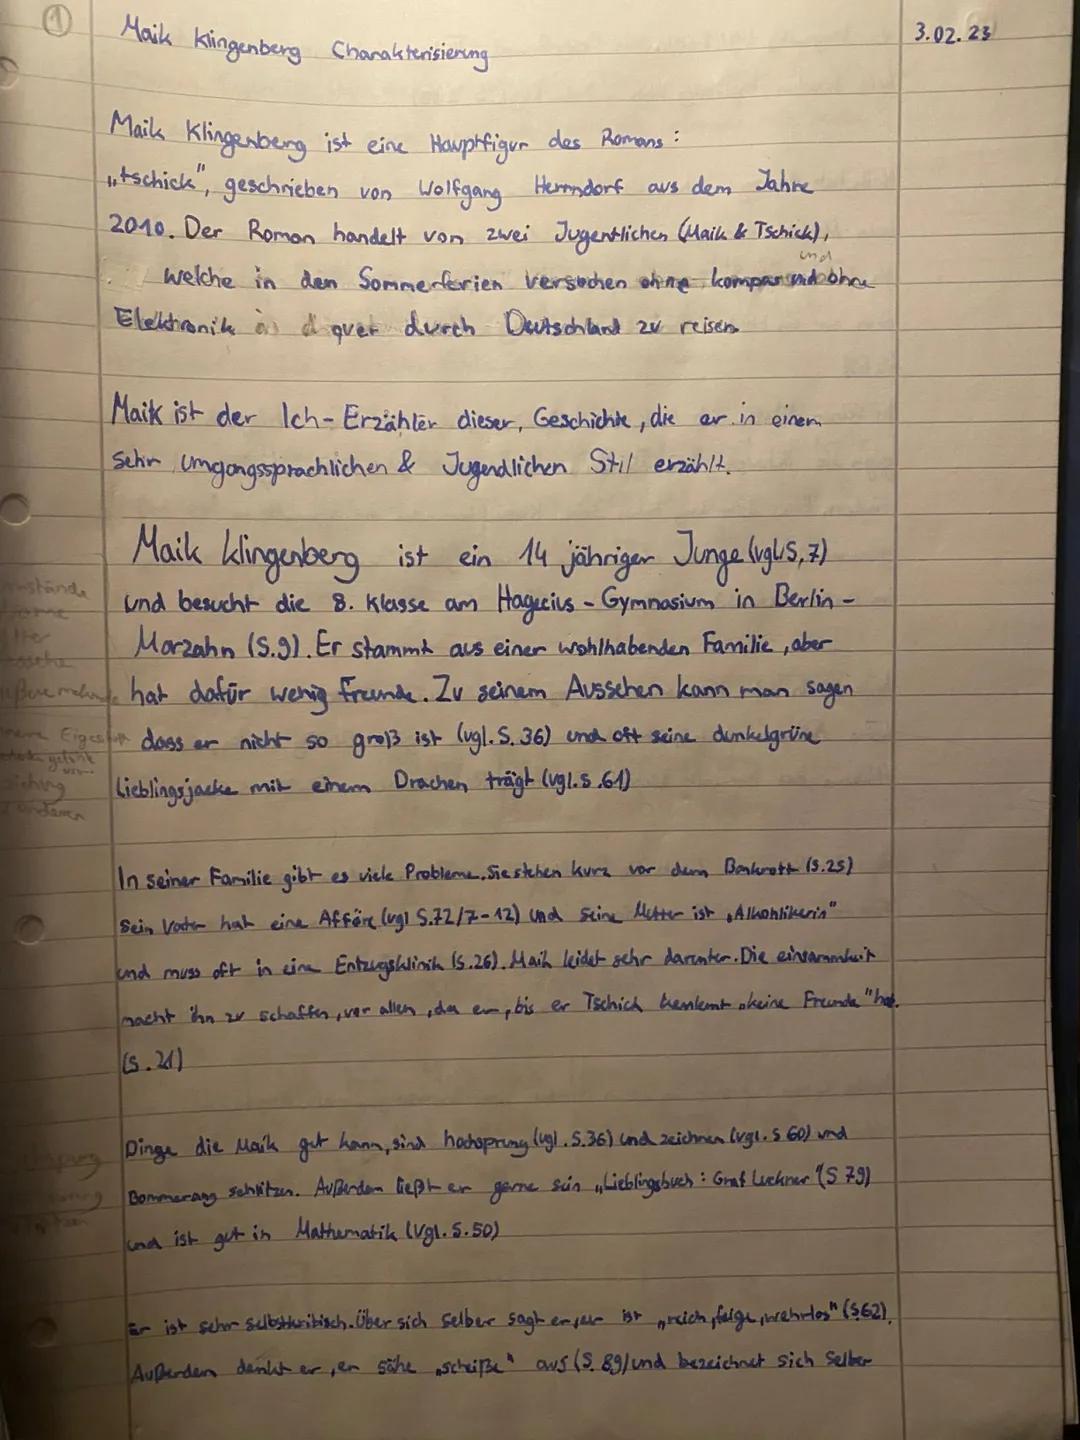 1
Maik Klingenberg Charakterisierung
3.02.23
Maik Klingenberg ist eine Hauptfigur des Romans:
„tschick", geschrieben von Wolfgang Herrndorf aus dem Jahre
2010. Der Roman handelt von zwei Jugentlichen (Maik & Tschick),
und
welche in den Sommerferien versuchen ohne kompas und ohne
Elektronik quer durch Deutschland zu reisen
Maik ist der Ich-Erzähler dieser, Geschichte, die er in einem
sehr umgangssprachlichen & Jugendlichen Stil erzählt.
Maik klingenberg ist ein 14 jähriger Junge (vgl. S. 7)
und besucht die 8. Klasse am Hagecius-Gymnasium in Berlin-
Marzahn (S.9). Er stammt aus einer wohlhabenden Familie, aber
hat dafür wenig Freunde. Zu seinem Aussehen kann man sagen
dass er nicht so groß ist (vgl. S. 36) und oft seine dunkelgrüne
Lieblingsjacke mit einem Drachen trägt (vgl. S. 61)
In seiner Familie gibt es viele Probleme. Sie stehen kurz vor dem Bankrott (S.25)
Sein Vater hat eine Affäre (vgl S.72/7-12) und seine Mutter ist „Alkohlikerin"
und muss oft in eine Entzugsklinik (S.26). Maik leidet sehr darunter. Die einsammkeit
macht ihn zu schaffen, vor allen, da er, bis er Tschick kenlernt „keine Freunde" hat.
(S. 21)
Dinge die Maik gut kann, sind hochsprung (vgl. S.36) und zeichnen (vgl. S 60) und
Bommerang schnitzen. Außerdem ließt er gerne sein „Lieblingsbuch: Graf Luckner" (S 79)
und ist gut in Mathematik (Vgl. S. 50)
Er ist sehr selbstkritisch. Über sich selber sagt er, er ist „reich, feige, wehrlos" (S.62).
Außerdem denkt er, er sähe „scheiße" aus (S. 89) und bezeichnet sich selber